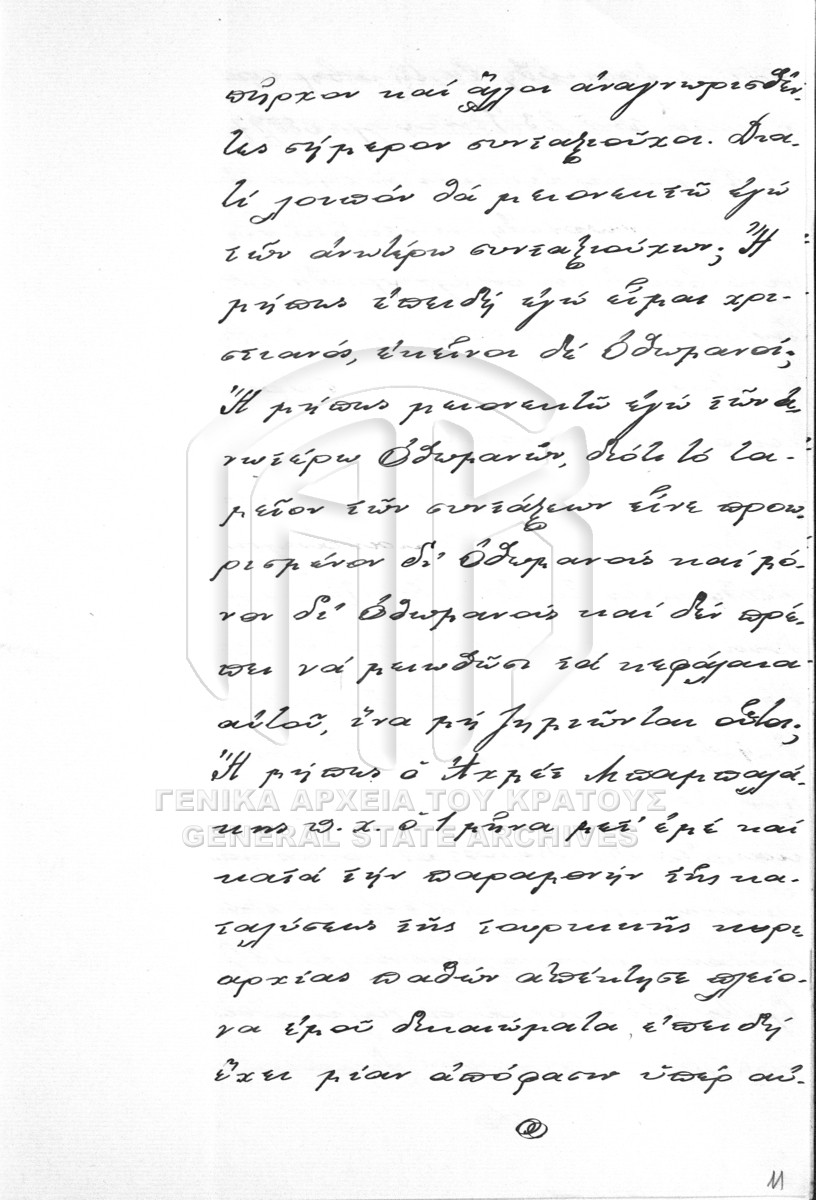 πῆρχον καί ἄλλοι ἀναγνωρισθέν-
τες σήμερον συνταξιοῦχοι. Δια-
τί λοιπόν θά μειονεκτῶ ἐγώ
τῶν ἀνωτέρω συνταξιούχων; Ἤ
μήπως ἐπειδή ἐγώ εἶμαι χρι-
στιανός, ἐκεῖνοι δέ Ὀθωμανοί;
Ἤ μήπως μειονεκτῶ ἐγώ τῶν ἀ-
νωτέρω Ὀθωμανῶν, διότι τό τα-
μεῖον τῶν συντάξεων εἶνε προω-
ρισμένον δι' Ὀθωμανούς καί μό-
νον δι' Ὀθωμανούς καί δέν πρέ-
πει νά μειωθῶσι τά κεφάλαια
αὐτοῦ, ἵνα μή ζημιῶνται οὗτοι;
Ἤ μήπως ὁ Ἀχμέτ Μπαμπαλά-
κης π.χ. ὁ 1 μῆνα μετ' ἐμέ καί
κατά τήν παραμονήν τῆς κα-
ταλύσεως τῆς τουρκικῆς κυρι
αρχίας παθών ἀπέκτησε πλείο-
να ἐμοῦ δικαιώματα, ἐπειδή
ἔχει μίαν ἀπόφασιν ὑπέρ αὐ-
ΓΕΝΙΚΑ ΑΡΧΕΙΑ ΤΟΥ ΚΡΑΤΟΥΣ
GENERAL STATE ARCHIVES
11